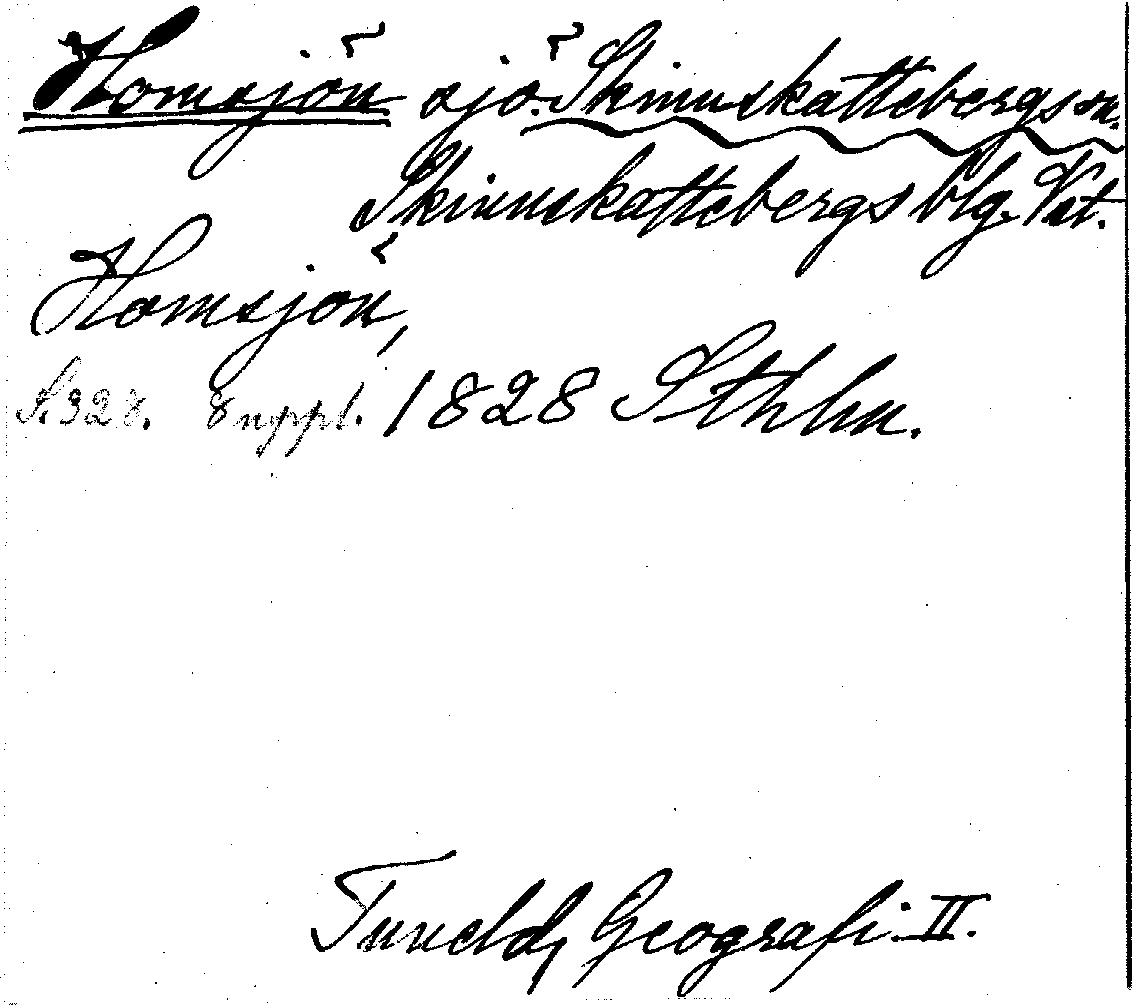 Homsjön sjö. Skinnskattebergs sn.
Skinnskattebergs blg. Vst.
Homsjön,
S. 328. 8 uppl. 1828 Sthlm.
Tuneld, Geografi. II.